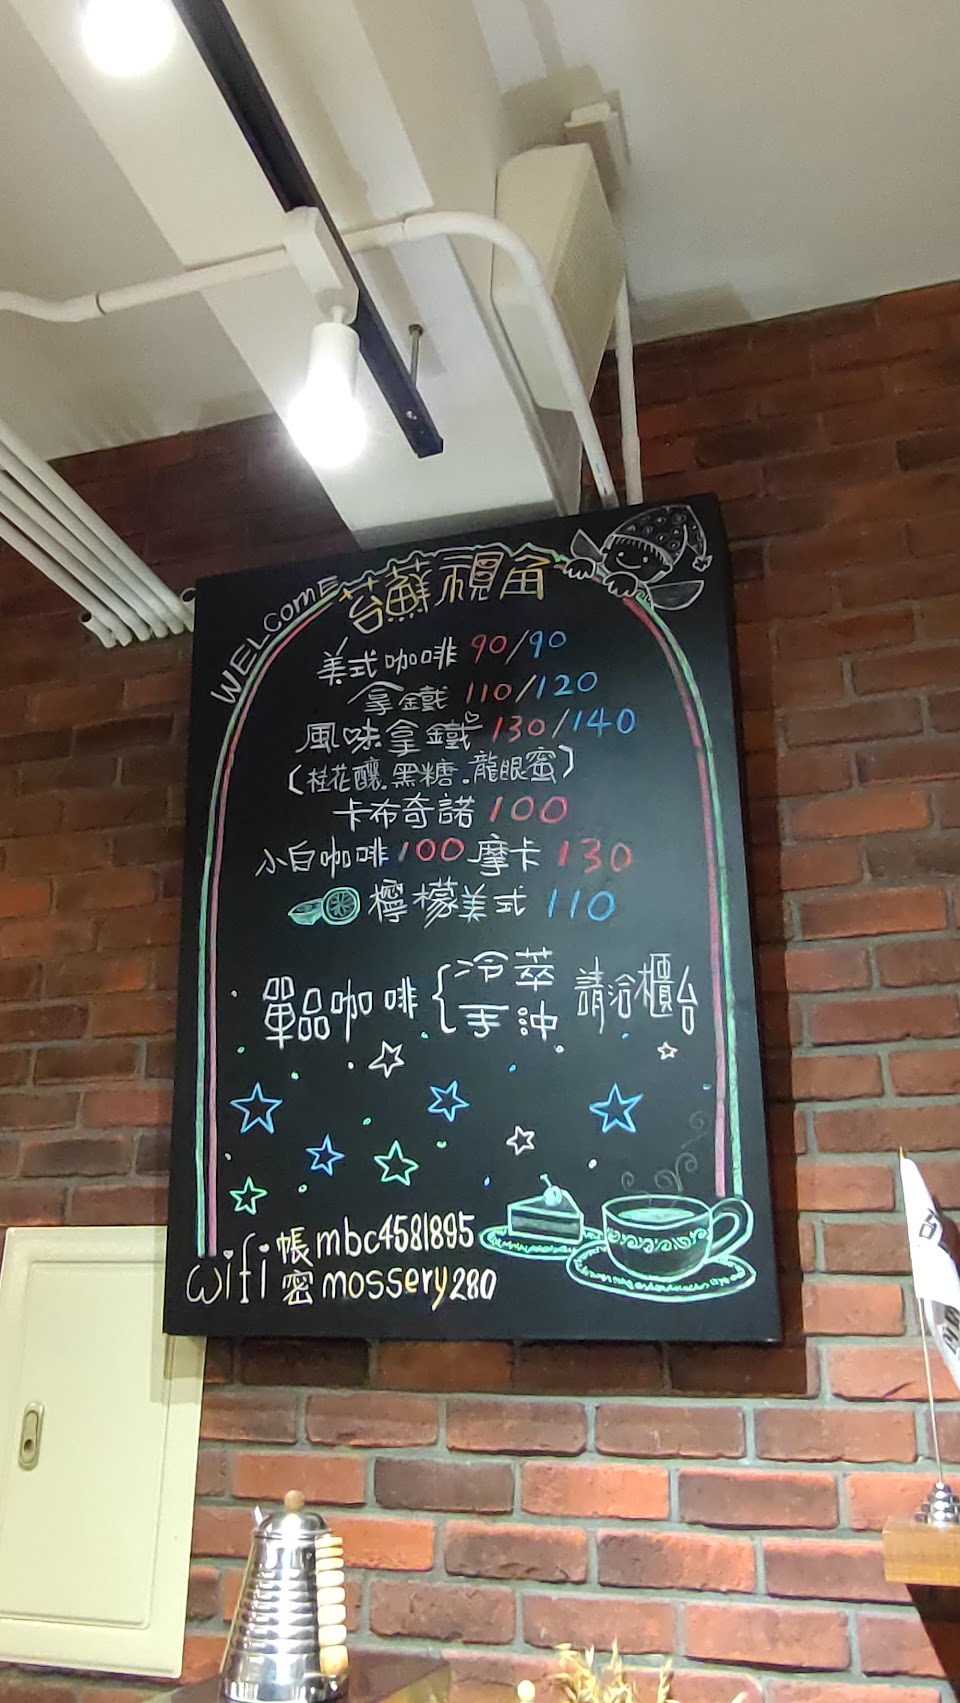 WELCOME 苔蘇視角
美式咖啡 90/90
拿鐵 110/120
風味拿鐵 130/140
(桂花釀.黑糖.龍眼蜜)
卡布奇諾 100
小白咖啡 100 摩卡 130
檸檬美式 110
單品咖啡 { 冷萃 請洽櫃台
手沖
wifi 帳 mbc4581895
密 mossery280